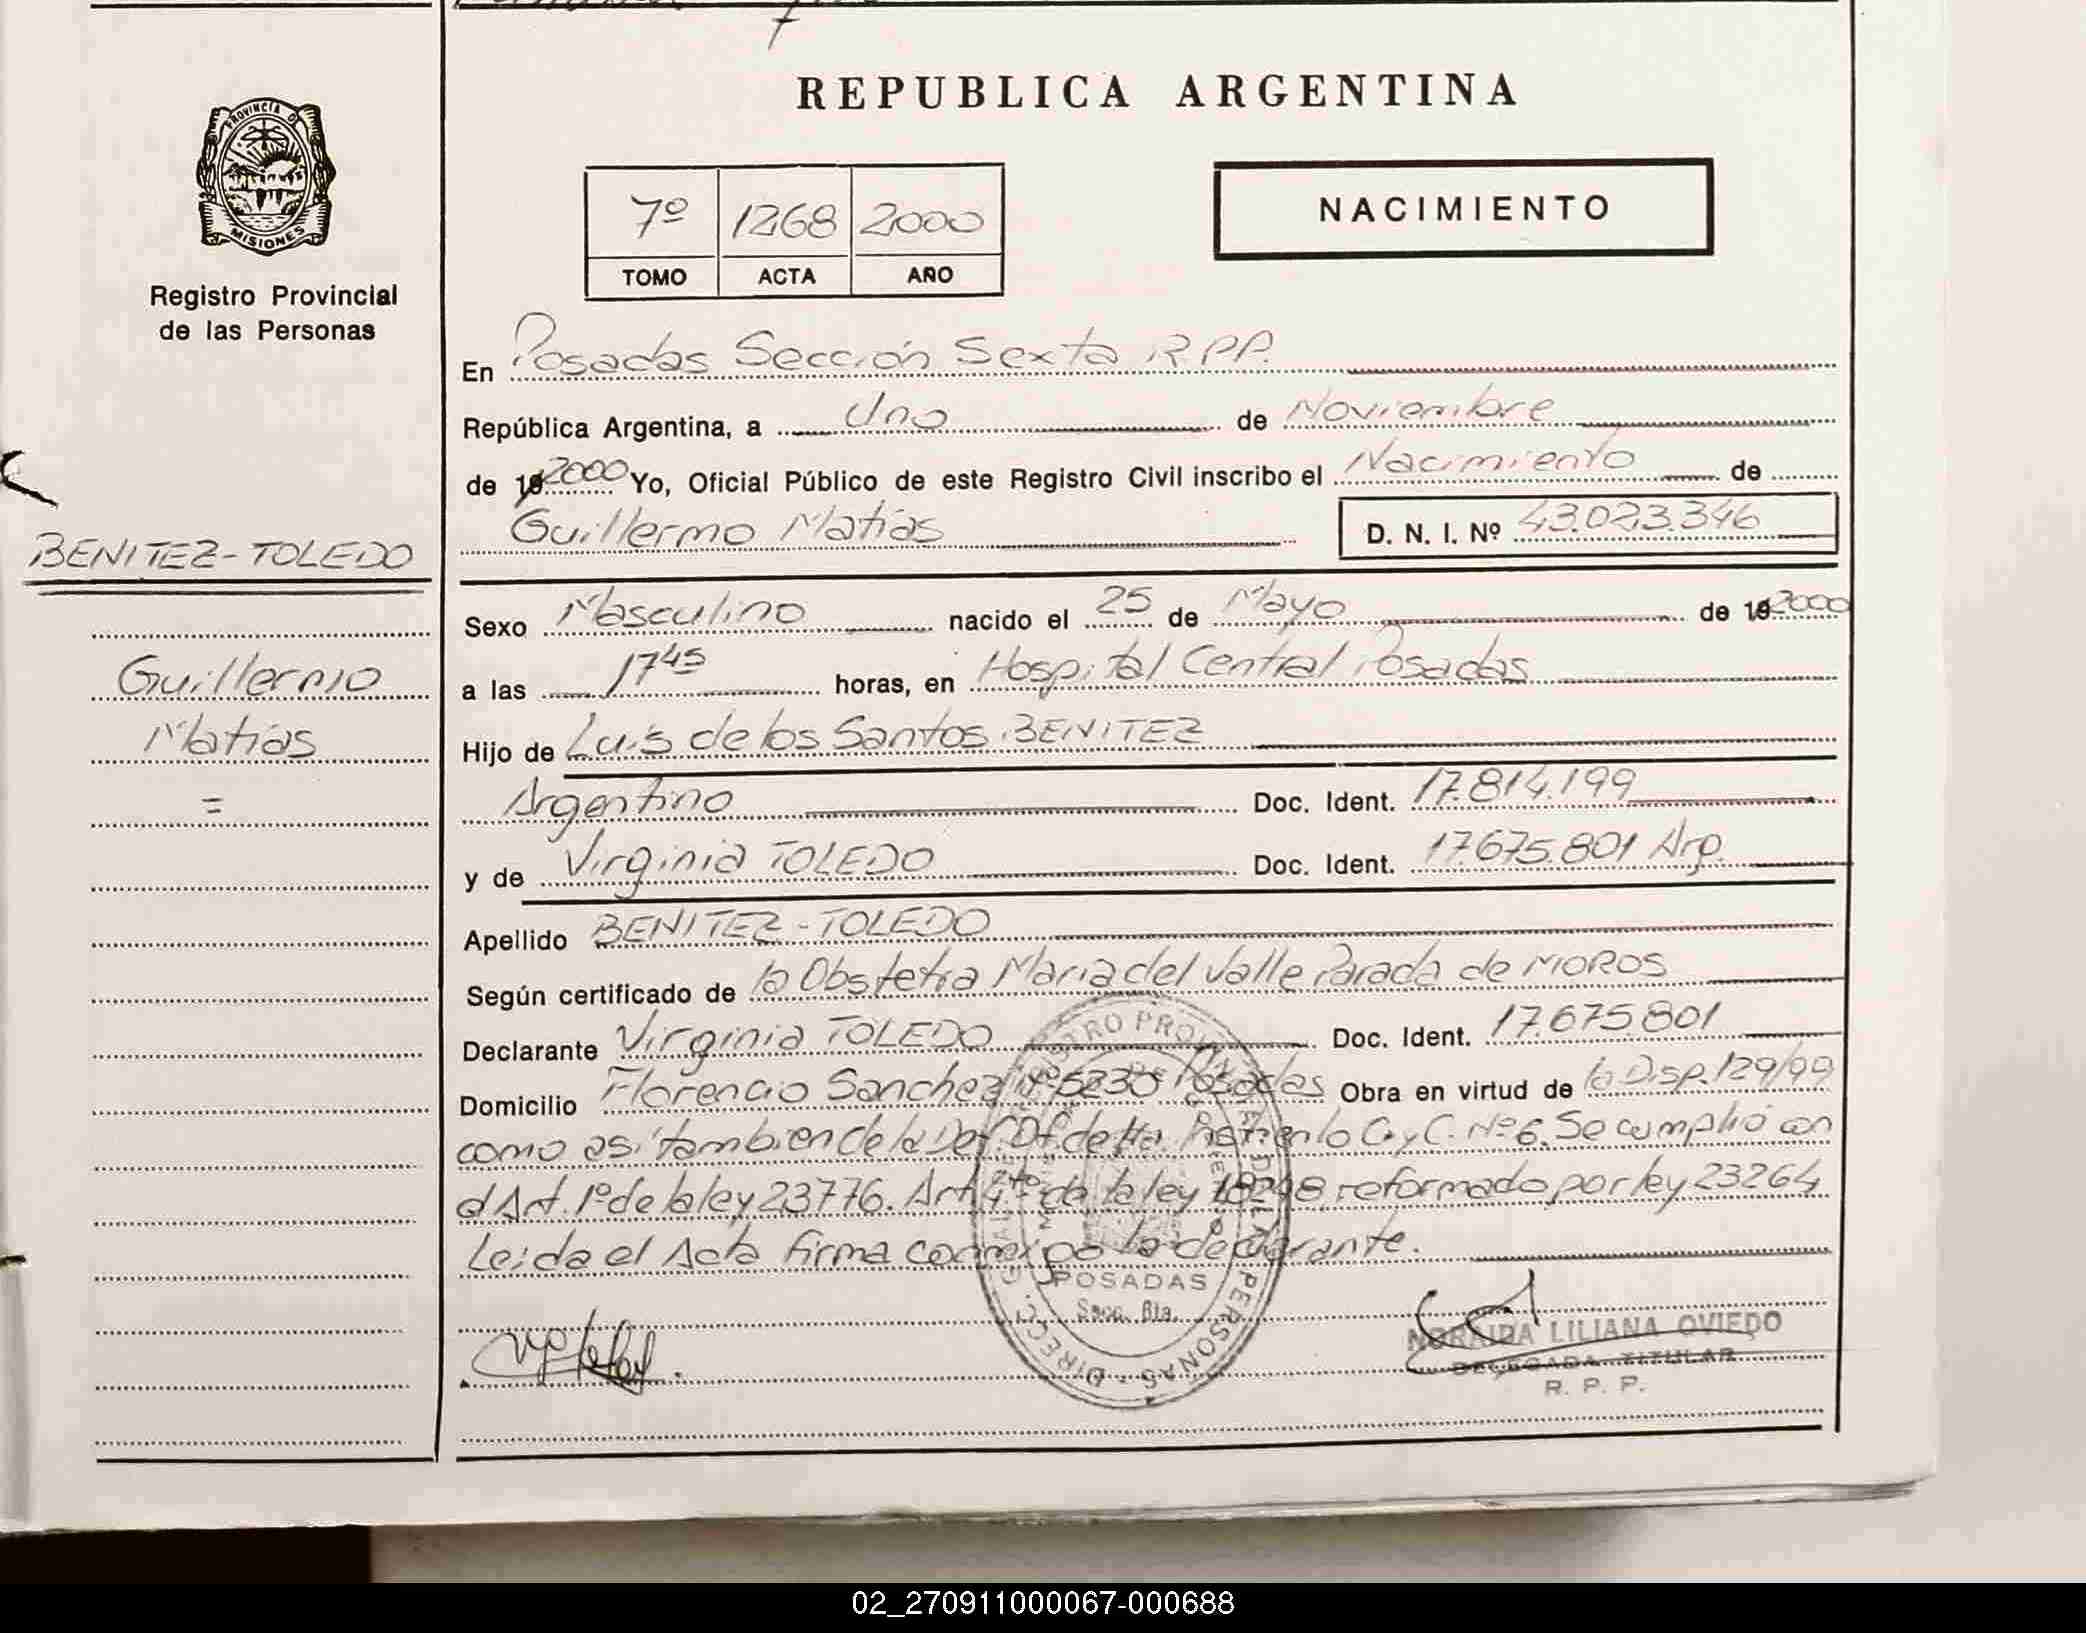 PROVINCIA D
MISIONES
Registro Provincial
de las Personas
BENITEZ-TOLEDO
Guillermo
Matías
=
REPUBLICA ARGENTINA
7º 1268 2000
TOMO ACTA AÑO
NACIMIENTO
En Posadas Sección Sexta R.P.P.
República Argentina, a Uno de Noviembre
de 19 2000 Yo, Oficial Público de este Registro Civil inscribo el Nacimiento de
Guillermo Matías D. N. I. Nº 43.023.346
Sexo Masculino nacido el 25 de Mayo de 19 2000
a las 17 45 horas, en Hospital Central Posadas
Hijo de Luis de los Santos BENITEZ
Argentino Doc. Ident. 17.814.199
y de Virginia TOLEDO Doc. Ident. 17.675.801 Arg.
Apellido BENITEZ-TOLEDO
Según certificado de la Obstetra Maria del Valle Parada de MOROS
Declarante Virginia TOLEDO Doc. Ident. 17.675.801
Domicilio Florencio Sanchez Nº 5230 Posadas Obra en virtud de la Disp. 129/99
como asi tambien de la Def. Of. de Nº 6. Se cumplió con
el Art. 1º de la ley 23776. Art. 4to de la ley 18248 reformado por ley 23264
Leida el Acta firma conmigo la declarante.
POSADAS
Secc. 6ta.
NORAIDA LILIANA OVIEDO
DELEGADA TITULAR
R. P. P.
02_270911000067-000688